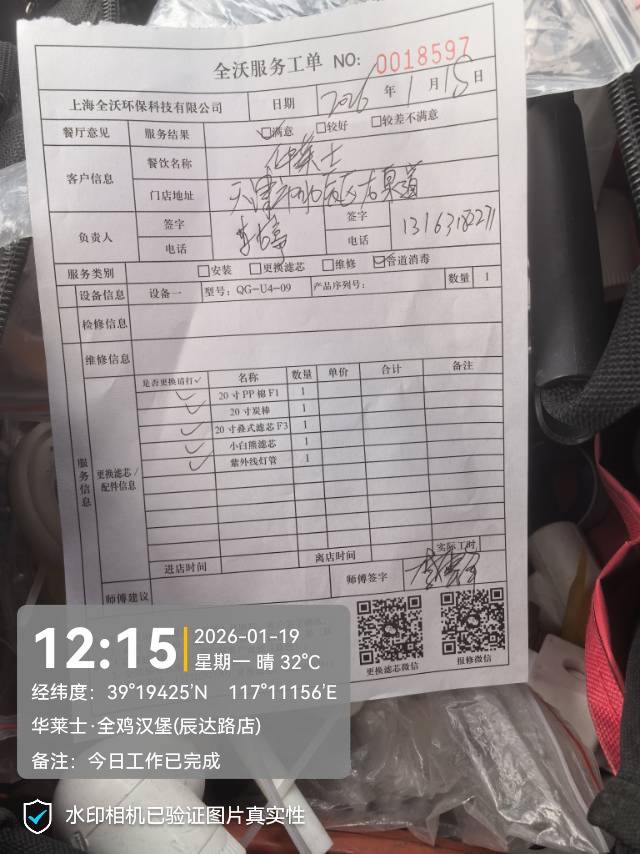 全沃服务工单 NO: 0018597
上海全沃环保科技有限公司 日期 2026年1月15日
餐厅意见 服务结果 ☑满意 □较好 □较差不满意
客户信息 餐饮名称 华莱士
门店地址 天津市
负责人 签字 签字
电话 电话
服务类别 □安装 □更换滤芯 □维修 ☑管道消毒
设备信息 设备一 型号: QG-U4-09 产品序列号: 数量 1
检修信息
维修信息
服务信息
更换滤芯/配件信息
是否更换请打✓ 名称 数量 单价 合计 备注
✓ 20寸PP棉F1 1
✓ 20寸炭棒 1
✓ 20寸叠式滤芯F3 1
✓ 小白熊滤芯 1
✓ 紫外线灯管 1
进店时间 离店时间 实际工时
师傅建议 师傅签字
更换滤芯微信 报修微信
12:15 2026-01-19
星期一 晴 32℃
经纬度: 39°19425′N 117°11156′E
华莱士·全鸡汉堡(辰达路店)
备注: 今日工作已完成
水印相机已验证图片真实性